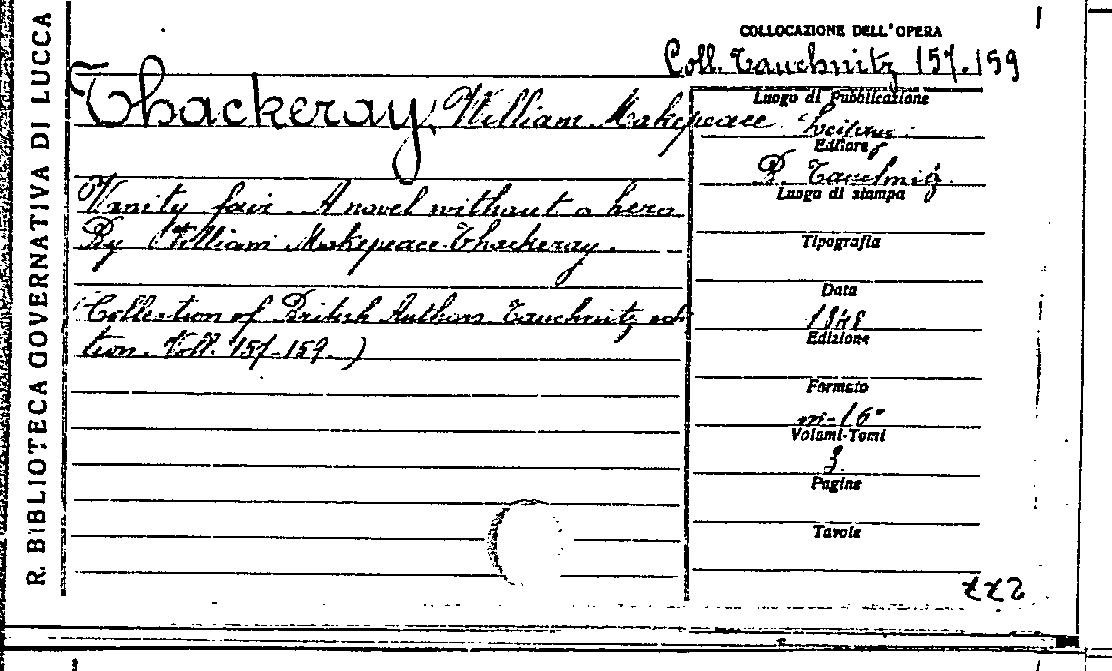 R. BIBLIOTECA GOVERNATIVA DI LUCCA
COLLOCAZIONE DELL'OPERA
Coll. Tauchnitz 157-159
Thackeray, William Makepeace
Vanity fair. A novel without a hero
By William Makepeace Thackeray.
(Collection of British Authors Tauchnitz edi
tion. Voll. 157-159.)
Luogo di Pubblicazione
Leipzig
Editore
B. Tauchnitz
Luogo di stampa
Tipografia
Data
1848
Edizione
Formato
in-16°
Volumi-Tomi
3
Pagine
Tavole